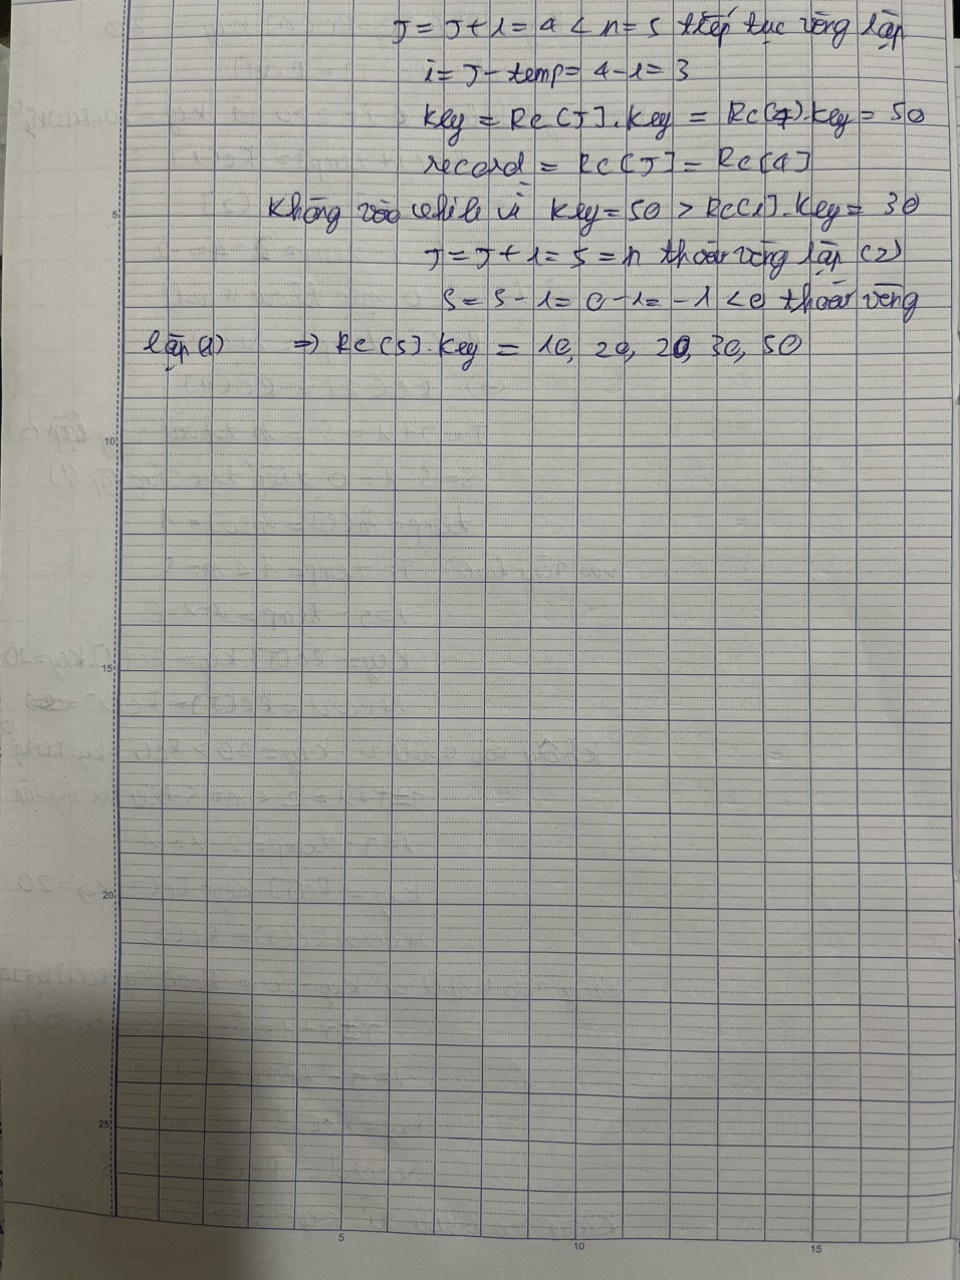 J = J + 1 = 4 < n = 5 tiếp tục vòng lặp
i = J - temp = 4 - 1 = 3
Key = Rc[J].Key = Rc[4].Key = 50
record = Rc[J] = Rc[4]
Không vào while vì Key = 50 > Rc[i].Key = 30
J = J + 1 = 5 = n thoát vòng lặp (2)
S = S - 1 = 0 - 1 = -1 < 0 thoát vòng
lặp (1) => Rc[5].Key = 10, 20, 20, 30, 50
5
10
15
20
25
5
10
15